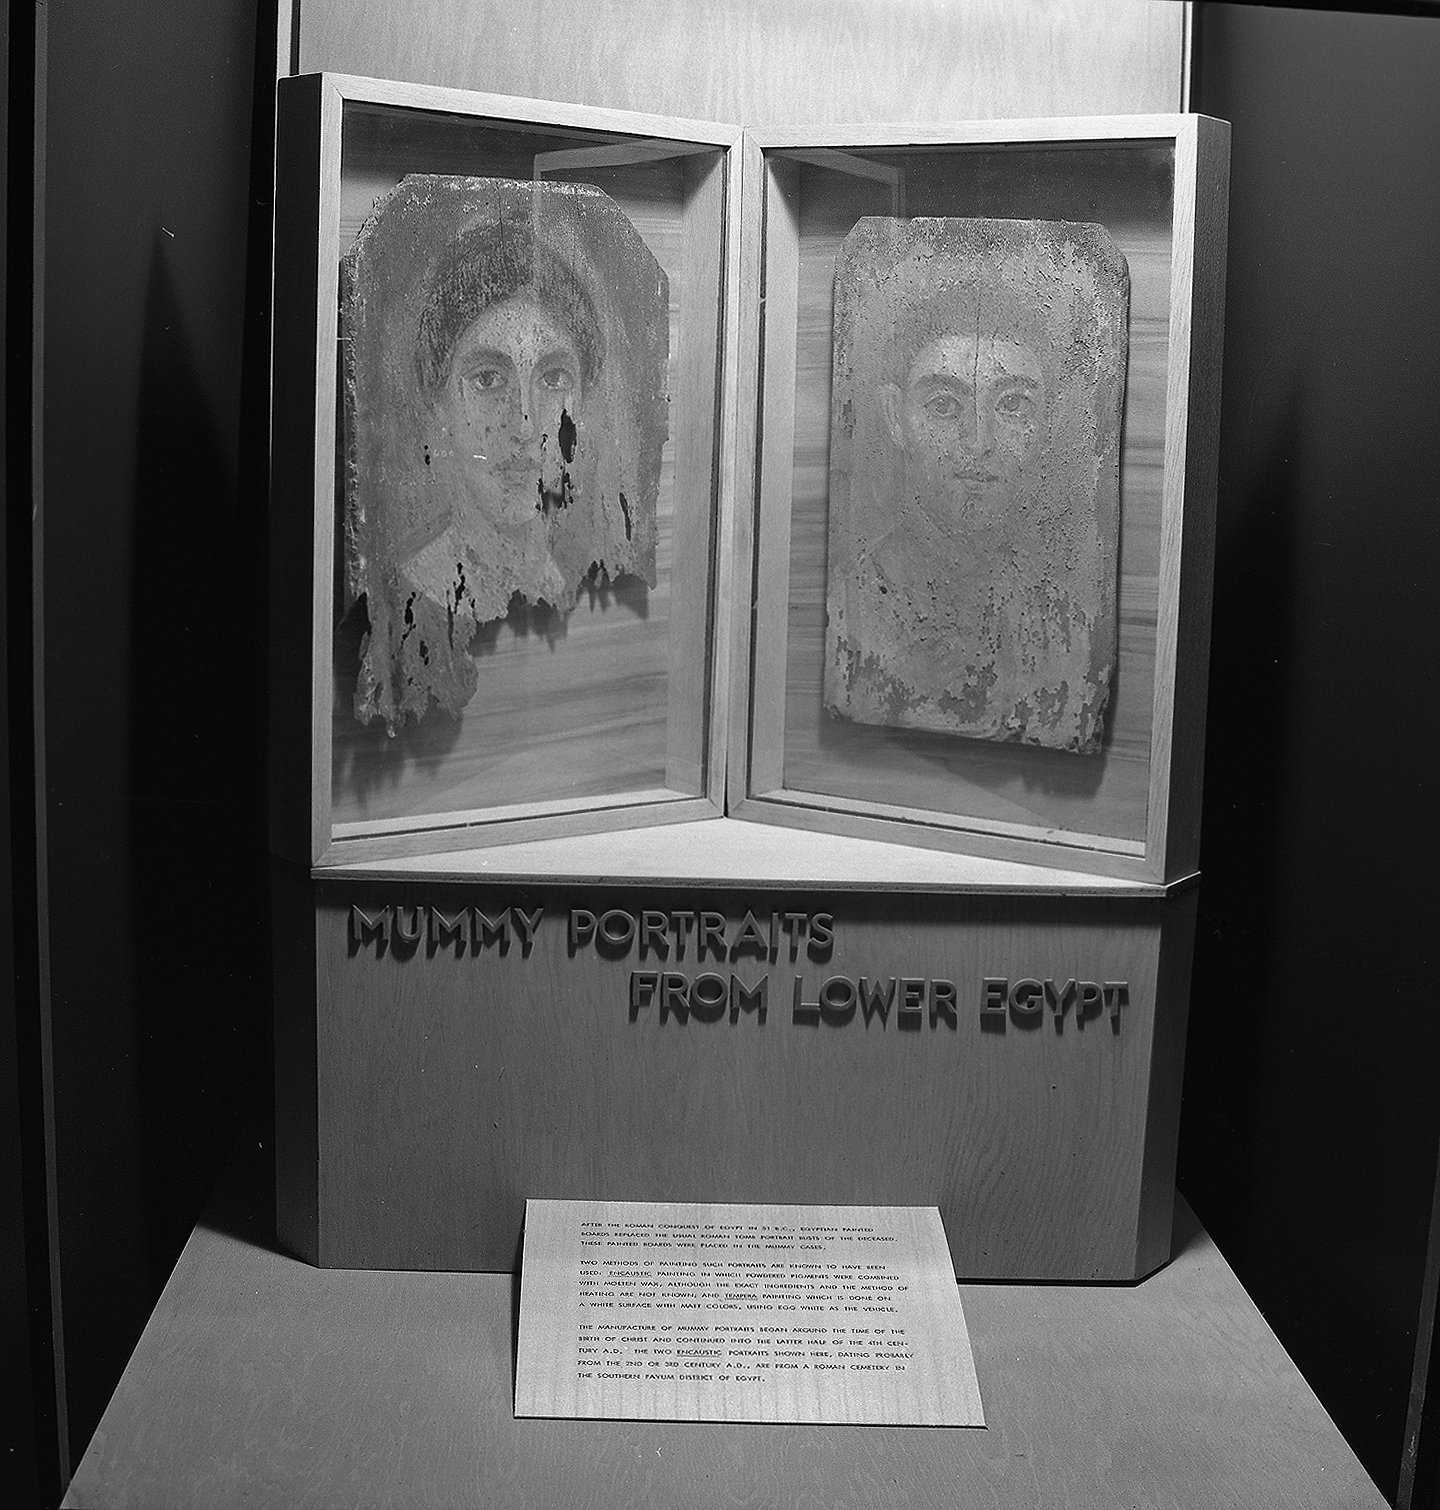 MUMMY PORTRAITS
FROM LOWER EGYPT
AFTER THE ROMAN CONQUEST OF EGYPT IN 31 B.C., EGYPTIAN PAINTED
BOARDS REPLACED THE USUAL ROMAN TOMB PORTRAIT BUSTS OF THE DECEASED.
THESE PAINTED BOARDS WERE PLACED IN THE MUMMY CASES.
TWO METHODS OF PAINTING SUCH PORTRAITS ARE KNOWN TO HAVE BEEN
USED: ENCAUSTIC PAINTING IN WHICH POWDERED PIGMENTS WERE COMBINED
WITH MOLTEN WAX, ALTHOUGH THE EXACT INGREDIENTS AND THE METHOD OF
HEATING ARE NOT KNOWN; AND TEMPERA PAINTING WHICH IS DONE ON
A WHITE SURFACE WITH MATT COLORS, USING EGG WHITE AS THE VEHICLE.
THE MANUFACTURE OF MUMMY PORTRAITS BEGAN AROUND THE TIME OF THE
BIRTH OF CHRIST AND CONTINUED INTO THE LATTER HALF OF THE 4TH CEN-
TURY A.D. THE TWO ENCAUSTIC PORTRAITS SHOWN HERE, DATING PROBABLY
FROM THE 2ND OR 3RD CENTURY A.D., ARE FROM A ROMAN CEMETERY IN
THE SOUTHERN FAYUM DISTRICT OF EGYPT.